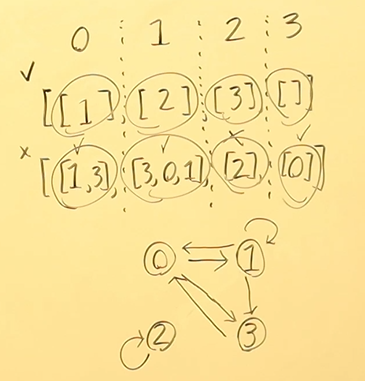 0 1 2 3
✓ [[1], [2], [3], []]
x [[1,3], [3,0,1], [2], [0]]
0 1
2 3